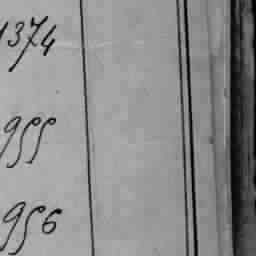 1374
955
956